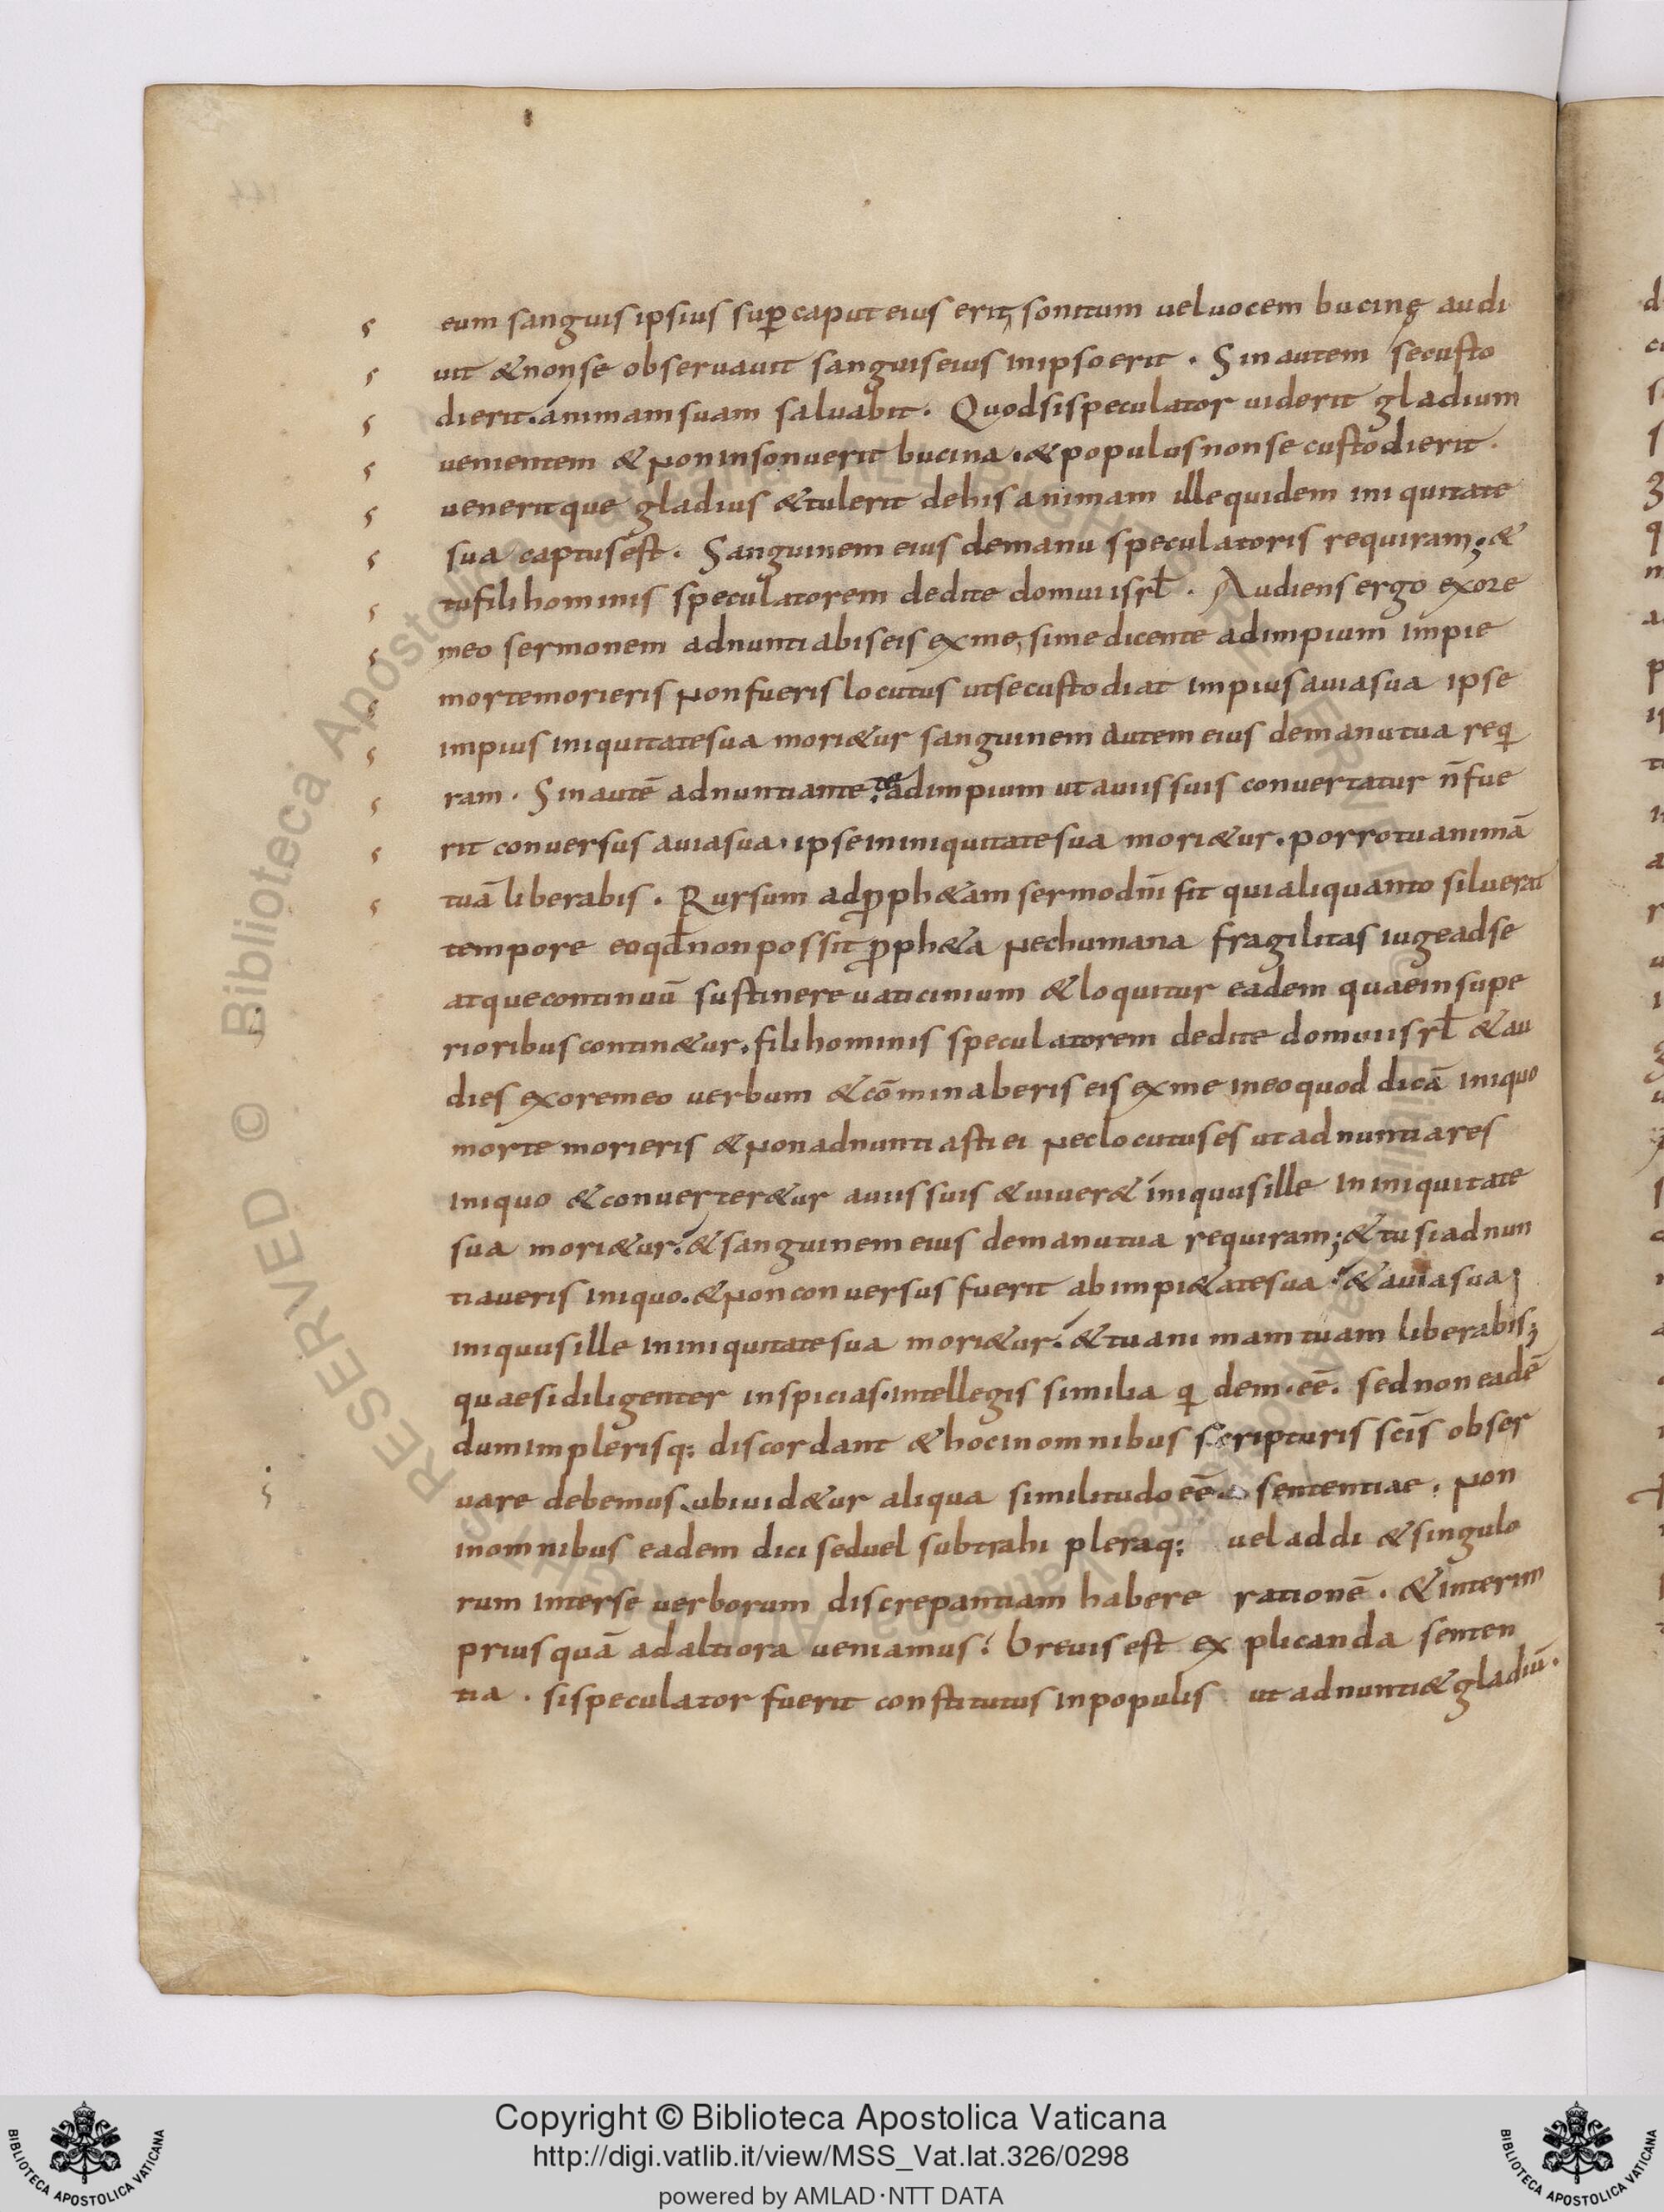 eum sanguis ipsius sup̱ caput eius erit, sonitum uel uocem bucinę audi
uit & non se obseruauit sanguis eius in ipso erit . Sin autem se custo
dierit . animam suam saluabit . Quod si speculator uiderit gladium
uenientem & non insonuerit bucina . & populus non se custodierit .
uenerit que gladius & tulerit de his animam ille quidem iniquitate
sua captus est . Sanguinem eius de manu speculatoris requiram ; &
tu fili hominis speculatorem dedi te domui isrł . Audiens ergo ex ore
meo sermonem adnuntiabis eis ex me, si me dicente ad impium impie
morte morieris non fueris locutus ut se custodiat impius a uia sua ipse
impius iniquitate sua mori&ur sanguinem autem eius de manu tua reqi
ram . Sin autē adnuntiante te ad impium ut a uiis suis conuertatur n̄ fue
rit conuersus a uia sua . ipse in iniquitate sua mori&ur . porro tu animā
tuā liberabis . Rursum ad ꝓph&am sermo dn̄i fit qui aliquanto siluerat
tempore eo qđ non possit ꝓph&a nec humana fragilitas iuge ad se
atque continuū sustinere uaticinium & loquitur eadem quae in supe
rioribus contin&ur . fili hominis speculatorem dedi te domui isrł & au
dies ex ore meo uerbum & cōminaberis eis ex me in eo quod dicā iniquo
morte morieris & non adnuntiasti ei nec locutus es ut adnuntiares
iniquo & conuerter&ur a uiis suis & uiuer& iniquus ille in iniquitate
sua mori&ur . & sanguinem eius de manu tua requiram ; & tu si adnun
tiaueris iniquo . & non conuersus fuerit ab impi&ate sua . & a uia sua ;
iniquus ille in iniquitate sua mori&ur . & tu animam tuam liberabis ;
quae si diligenter inspicias . intellegis similia qi dem . eē . sed non eadē
dum im plerisq: discordant & hoc in omnibus scripturis sc̄is obser
uare debemus . ubi uid&ur aliqua similitudo eē sententiae . non
in omnibus eadem dici sed uel subtrahi pleraq: uel addi & singulo
rum inter se uerborum discrepantiam habere rationē . & interim
prius quā ad altiora ueniamus . breuis est explicanda senten
tia . si speculator fuerit constitutus in populis ut adnunti& gladiū .
Copyright © Biblioteca Apostolica Vaticana
http://digi.vatlib.it/view/MSS_Vat.lat.326/0298
powered by AMLAD·NTT DATA